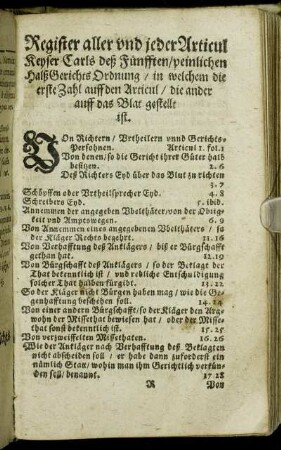 Register aller vnd jeder Articul
Keyser Carls deß Fünfften/peinlichen
Halß Gerichts Ordnung / in welchem die
erste Zahl auff den Articul / die ander
auff das Blat gestelt
ist.
VOn Richtern / Vrtheilern vnnd Gerichts-
Persohnen. Articul 1. fol. 1
Von denen/so die Gericht ihrer Güter halb
besitzen. 2. 6
Deß Richters Eyd über das Blut zu richten
3. 7
Schöpffen oder Vrtheilsprecher Eyd. 4. 8
Schreibers Eyd. 5. ibid.
Annemmen der angegeben Vbelthäter/von der Obrig-
keit vnd Amptswegen. 6. 9
Von Annemmen eines angegebenen Vbelthäters / so
der Kläger Rechts begehrt. 11. 16
Von Verhafftung deß Anklägers / biß er Bürgschafft
gethan hat. 12. 19
Von Bürgschafft deß Anklägers / so der Beklagt der
That bekenntlich ist / vnd redliche Entschuldigung
solcher That halben fürgeibt. 13. 22
So der Kläger nicht Bürgen haben mag / wie die Ge-
genhafftung beschehen soll. 14. 24
Von einer andern Bürgschafft/ so der Kläger den Arg-
wohn der Missethat bewiesen hat / oder der Misse-
that sonst bekenntlich ist. 15. 25
Von verzweiffelten Missethaten. 16. 26
Wie der Ankläger nach Verhafftung deß Beklagten
nicht abscheiden soll / er habe dann zuforderst ein
nämlich Statt/ wohin man ihm Gerichtlich verkün-
den soll/ benannt. 17 28
R Von